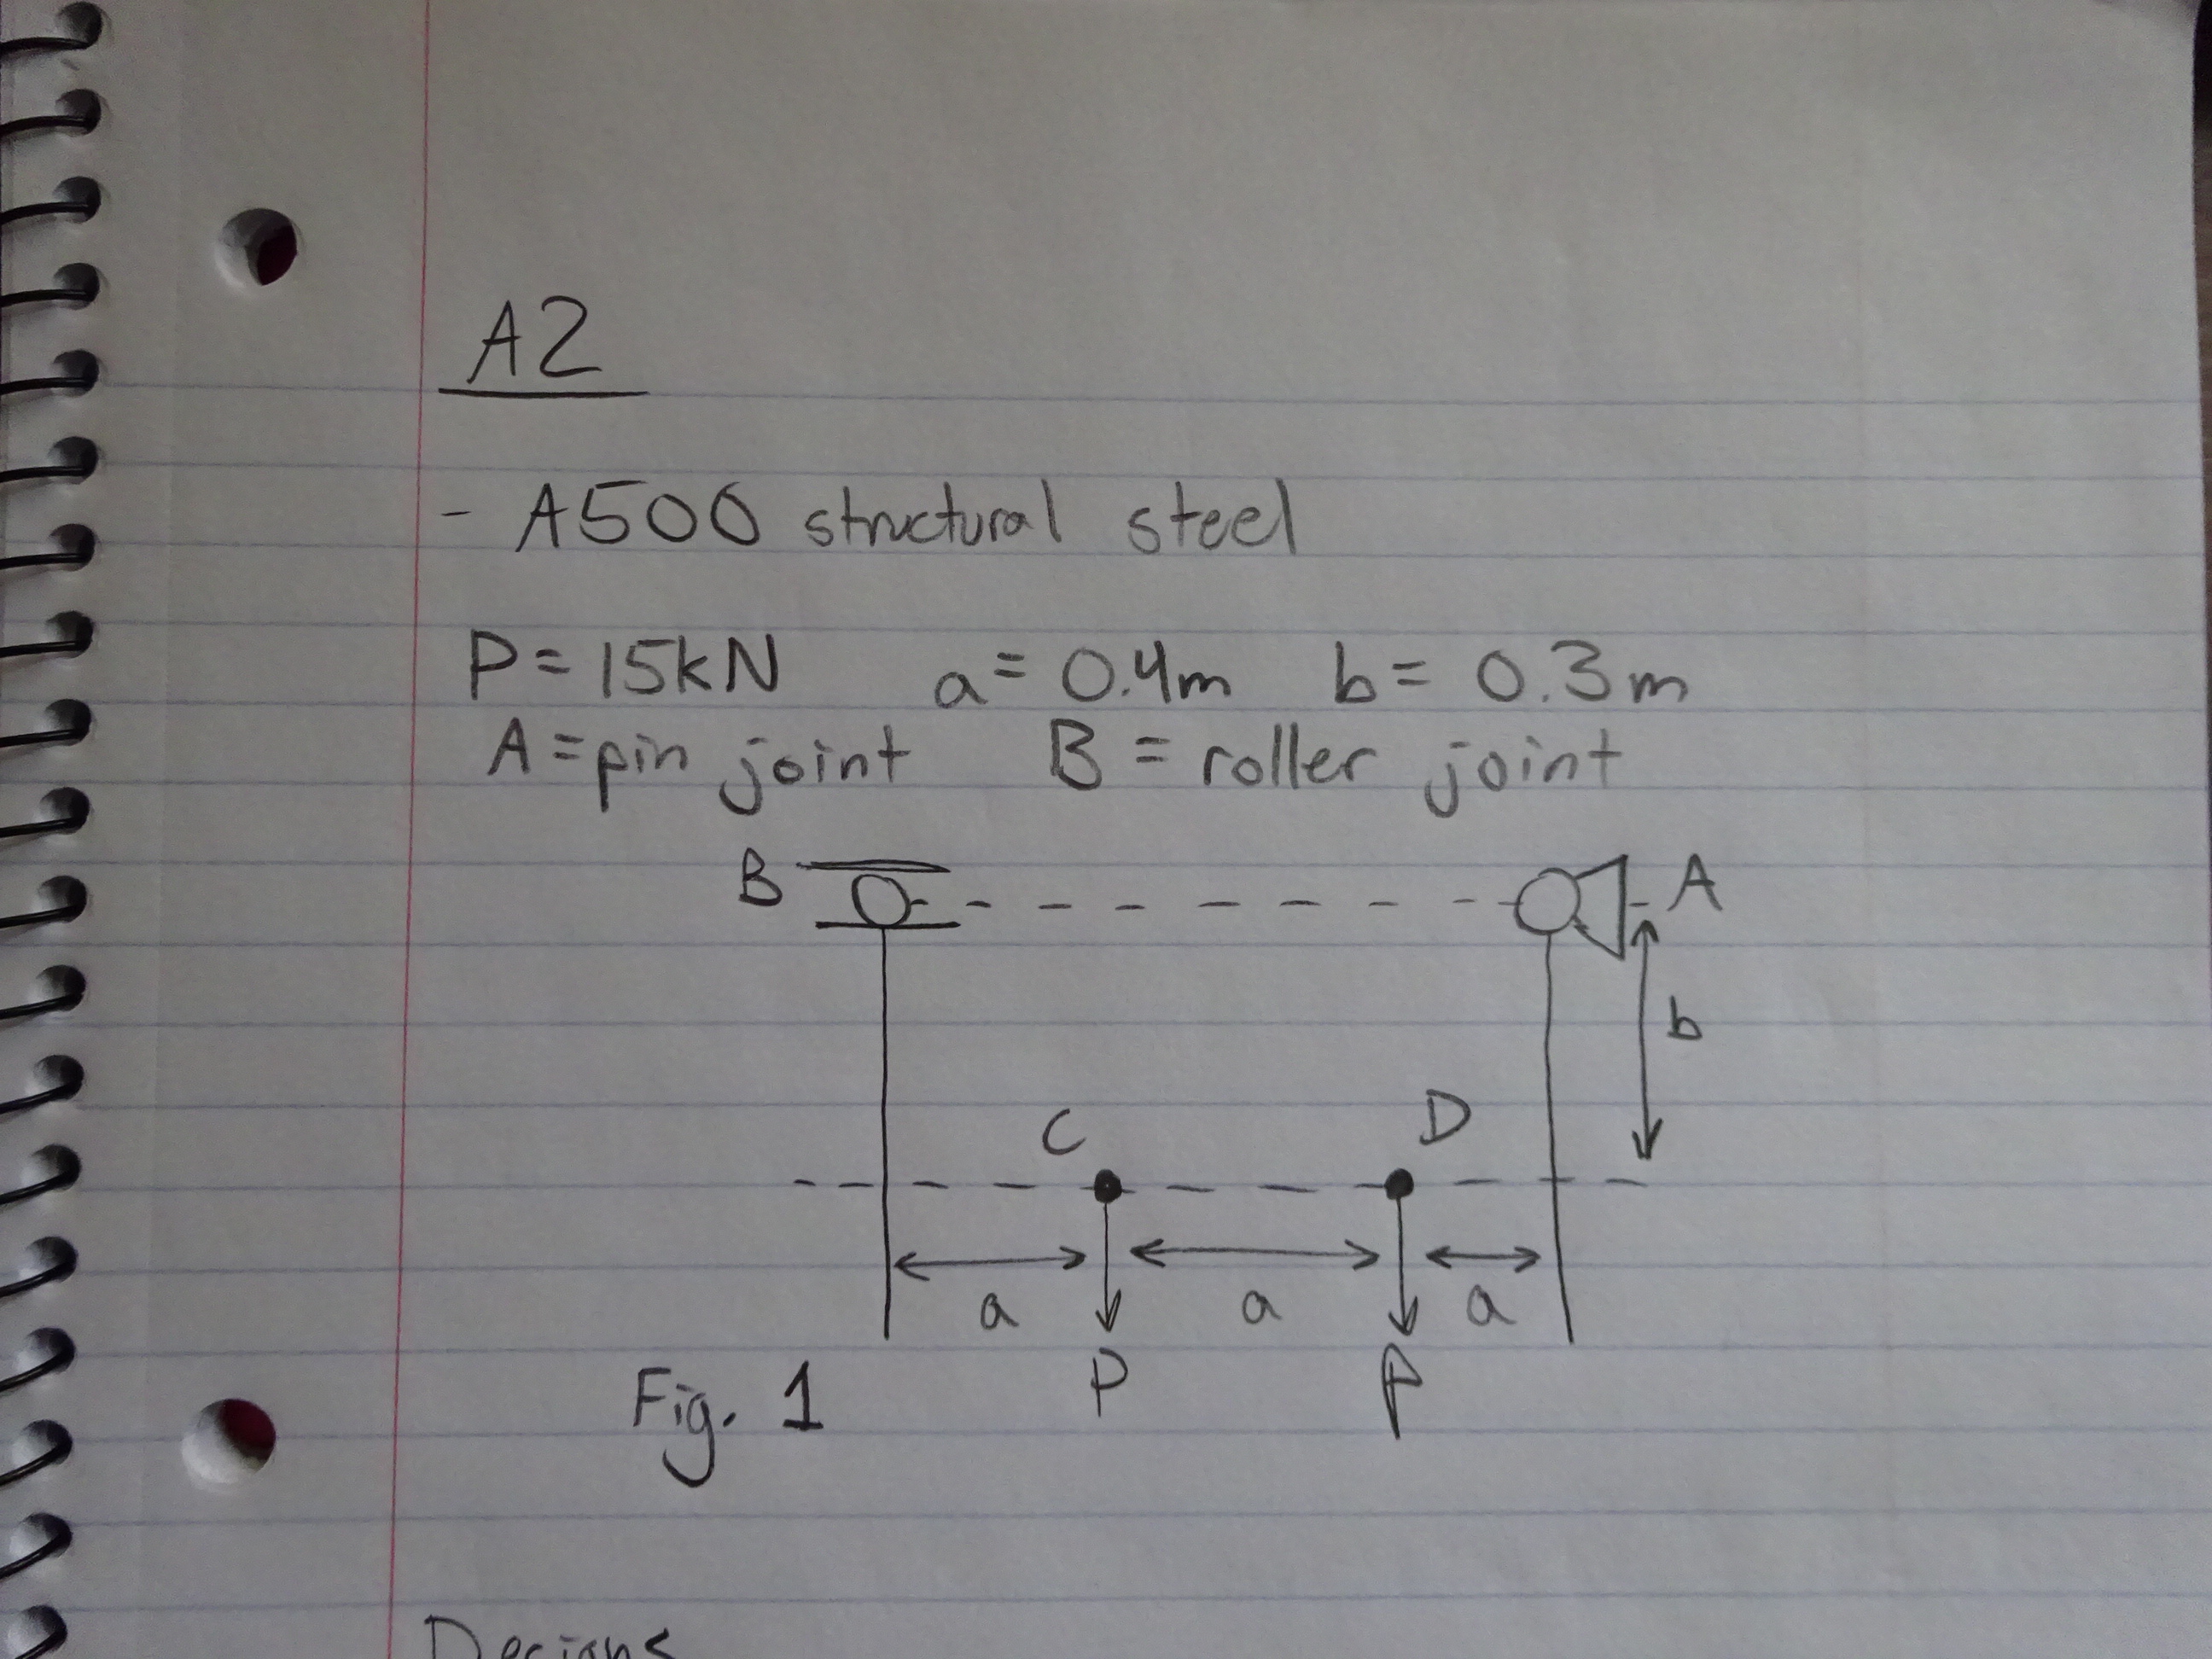 A2
- A500 structural steel
P = 15kN a = 0.4m b = 0.3m
A = pin joint B = roller joint
B A
b
C D
a a a
P P
Fig. 1
Designs